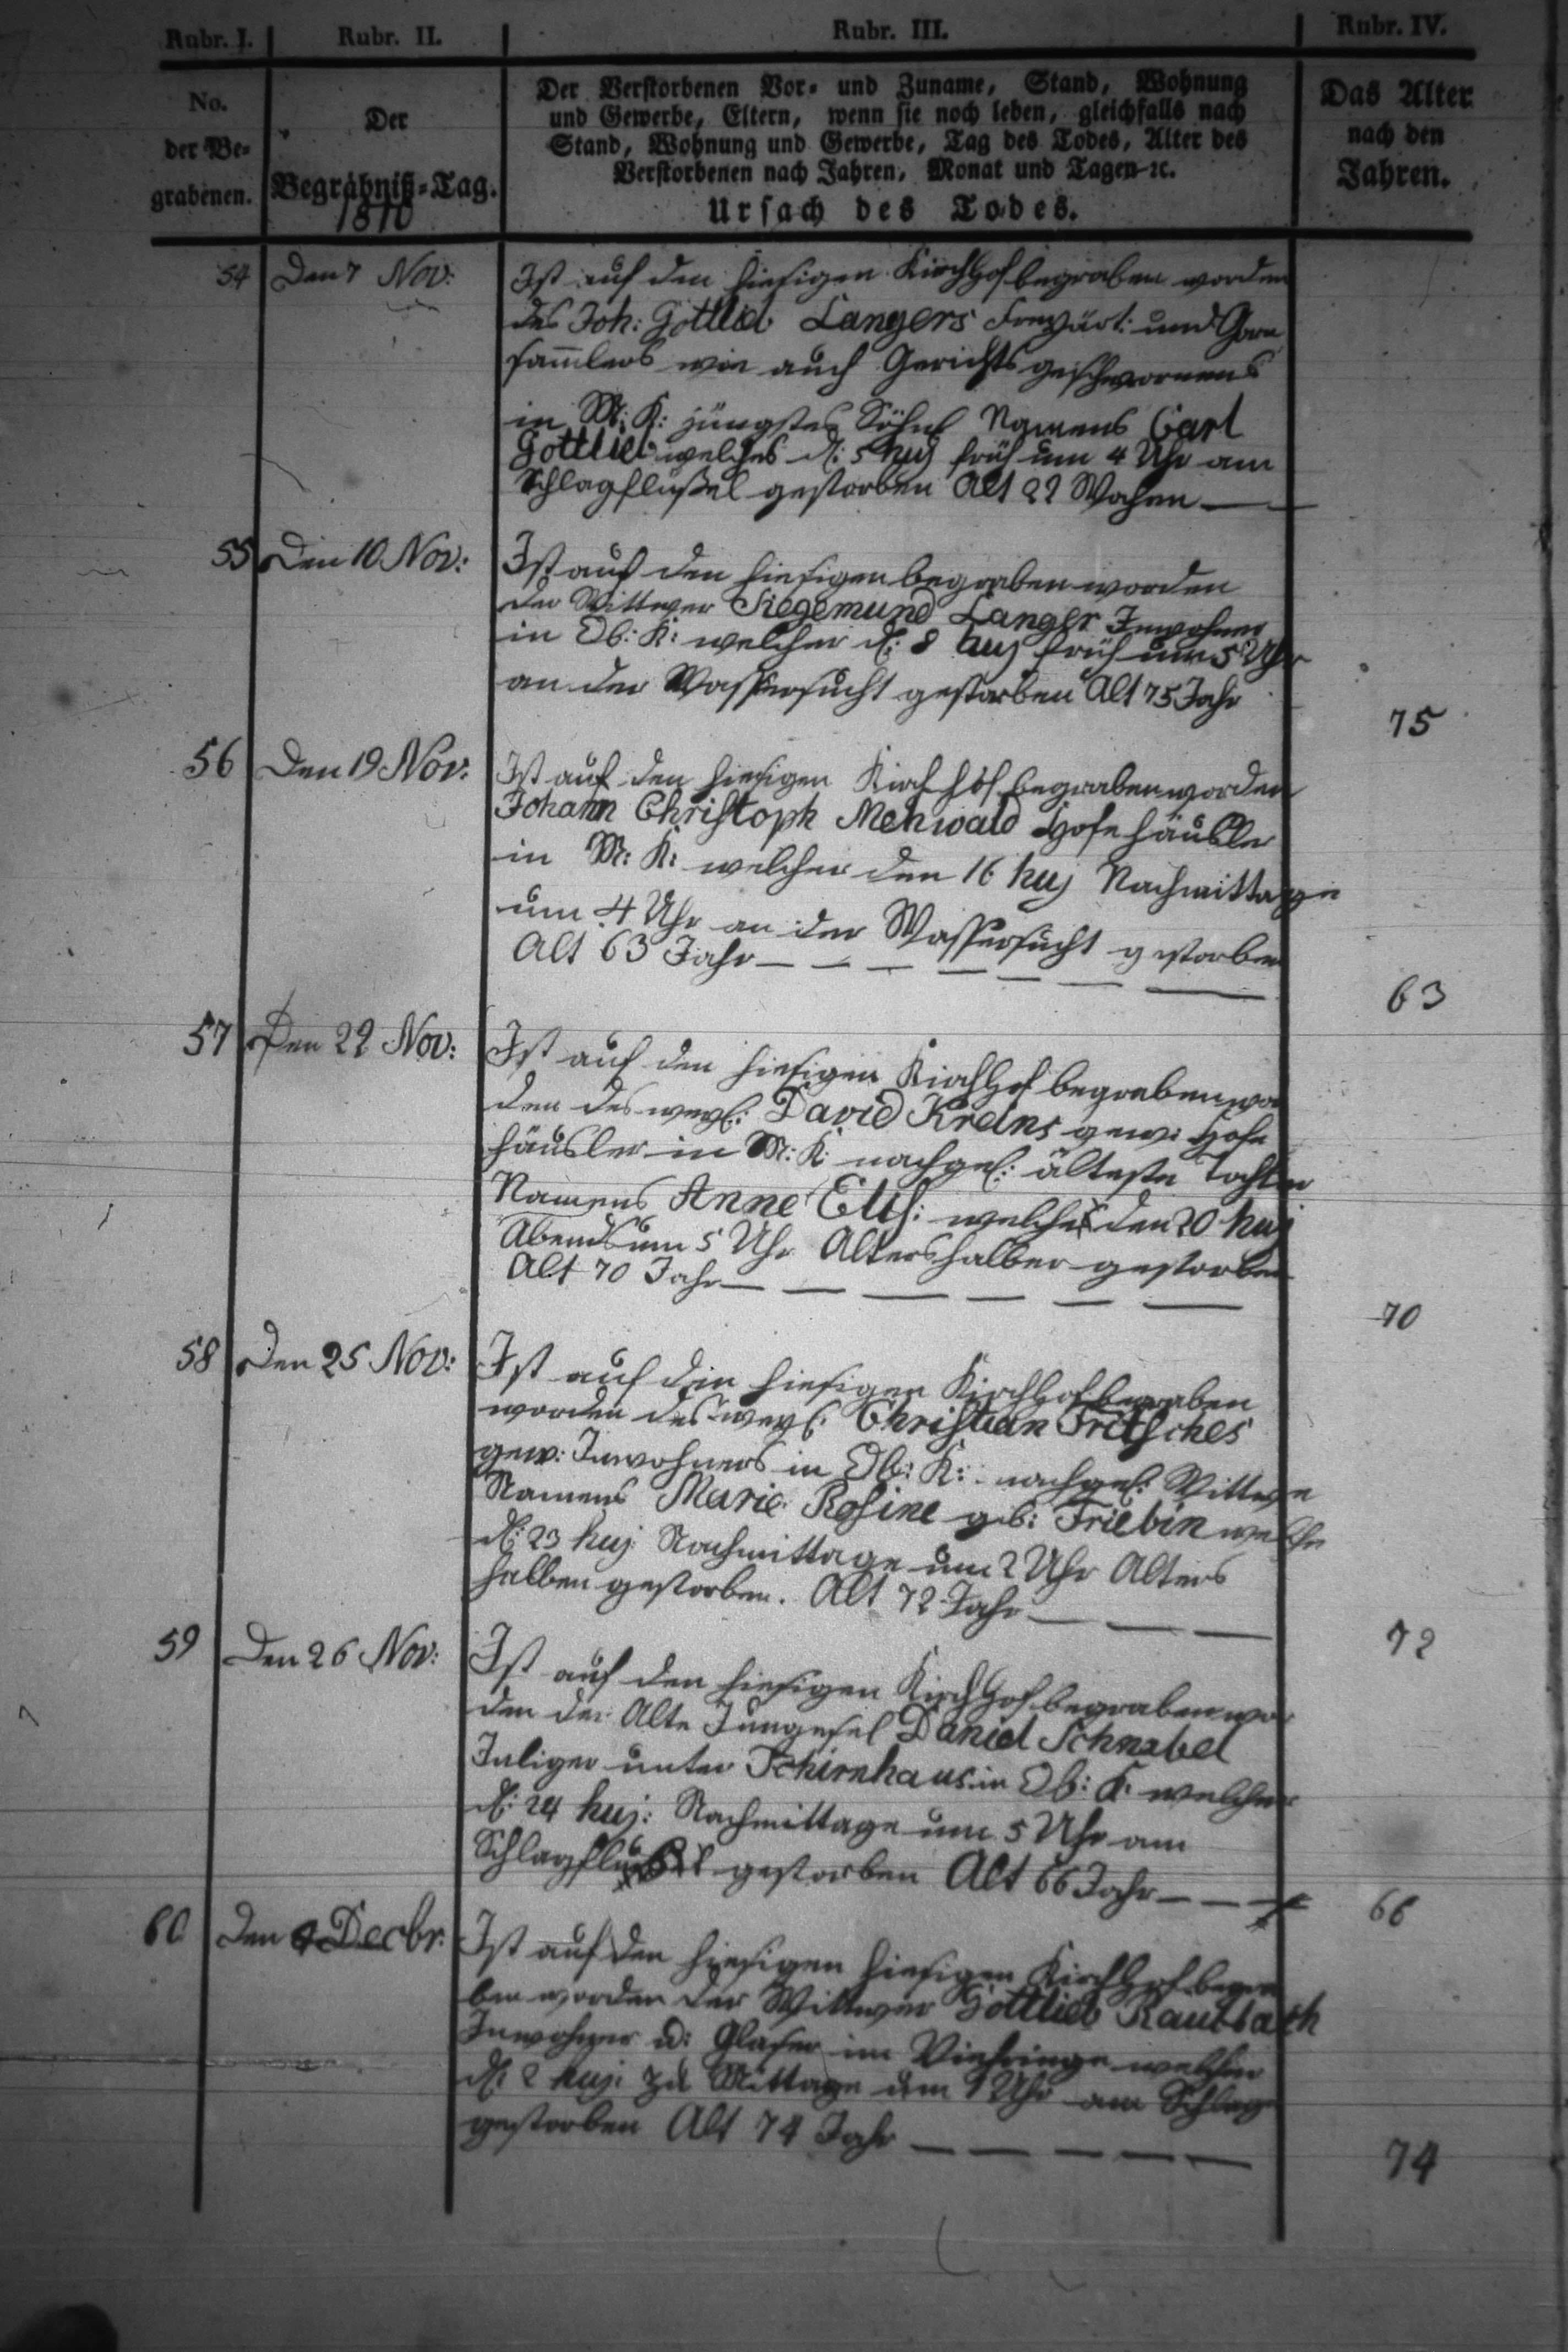 Rubr. I. Rubr. II. Rubr. III. Rubr. IV.
No.
der Be-
grabenen.
Der
Begräbniß-Tag.
1810
Der Verstorbenen Vor- und Zuname, Stand, Wohnung
und Gewerbe, Eltern, wenn sie noch leben, gleichfalls nach
Stand, Wohnung und Gewerbe, Tag des Todes, Alter des
Verstorbenen nach Jahren, Monat und Tagen-ꝛc.
Ursach des Todes.
Das Alter
nach den
Jahren.
54 Den 7 Nov: Ist auf den hiesigen Kirchhof begraben worden
des Joh: Gottlieb Langers Freygärt: und Garn
sam̄lers wie auch Gerichts geschwornens
in M: K: jüngstes Söhnl Namens Carl
Gottlieb welches d: 5 huj früh um 4 Uhr am
Schlagflüßel gestorben Alt 22 Wochen
55 Den 10 Nov: Ist auf den hiesigen begraben worden
der Wittwer Siegemund Langer Inwohner
in Ob: K: welcher d: 8 huj früh um 5 Uhr
an der Wassersucht gestorben Alt 75 Jahr
75
56 Den 19 Nov: Ist auf den hiesigen Kirchhof begraben worden
Johann Christoph Mehwald Hofehäusler
in M: K: welcher den 16 huj Nachmittage
um 4 Uhr an der Wassersucht gestorben
Alt 63 Jahr
63
57 Den 22 Nov: Ist auf den hiesigen Kirchhof begraben wor
den des weyl: David gew: Hofe
häusler in M: K: nachgel: älteste Tochter
Namens Anne Elis: welche den 20 huj
Abends um 5 Uhr Altershalber gestorben
Alt 70 Jahr
70
58 Den 25 Nov: Ist auf den hiesigen Kirchhof begraben
worden des weyl: Christian Fritsches
gew: Inwohners in Ob: K: nachgel: Wittwe
Namens Marie Rosine geb: Friebin welche
d: 23 huj: Nachmittage um 2 Uhr Alters
halben gestorben. Alt 72 Jahr
72
59 Den 26 Nov: Ist auf den hiesigen Kirchhof begraben wor
den der Alte Jungesel Daniel Schnabel
Inliger unter Tschirnhaus in Ob: K: welcher
d: 24 huj: Nachmittage um 5 Uhr am
gestorben Alt 66 Jahr
66
60 Den 4 Decbr. Ist auf den hiesigen hiesigen Kirchhof begra
ben worden der Wittwer Gottlieb
Inwohner u: Glaser im Viehringe welcher
d: 2 huj: zu Mittage um 1 Uhr am Schlag
gestorben Alt 74 Jahr
74